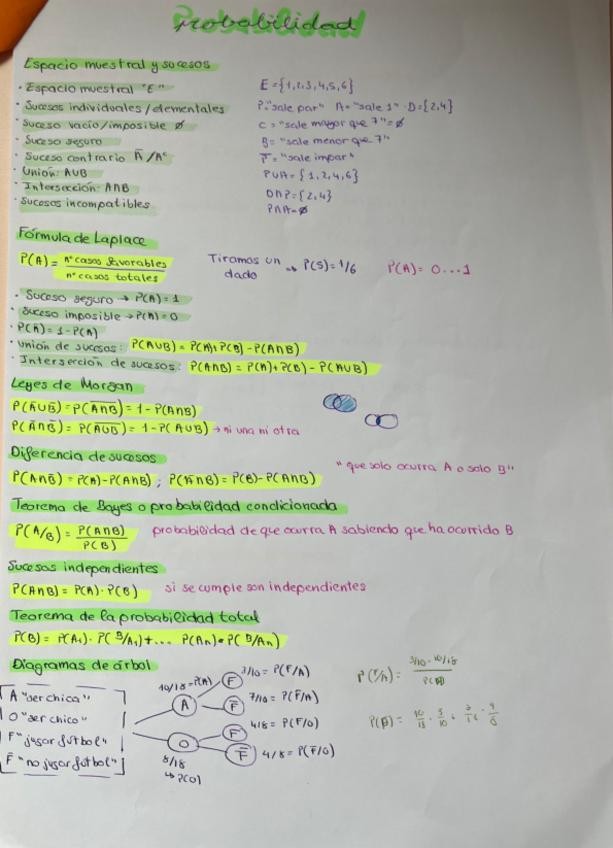 Probabilidad
Espacio muestral y sucesos
· Espacio muestral "E" E = {1,2,3,4,5,6}
· Sucesos individuales/elementales P:"sale par" A="sale 1" · D={2,4}
· Suceso vacío/imposible ∅ C = "sale mayor que 7" = ∅
· Suceso seguro B= "sale menor que 7"
· Suceso contrario Ā /Aᶜ P̄ = "sale impar"
· Unión: AUB PUA = {1,2,4,6}
· Intersección: A∩B D∩P={2,4}
· Sucesos incompatibles P∩A=∅
Fórmula de Laplace
P(A) = nº casos favorables / nº casos totales Tiramos un dado ⇒ P(5)=1/6 P(A)= 0...1
· Suceso seguro → P(A)=1
· Suceso imposible → P(A)=0
· P(Ā)=1-P(A)
· Unión de sucesos: P(AUB) = P(A)+P(B)-P(A∩B)
· Intersección de sucesos: P(A∩B) = P(A)+P(B)-P(AUB)
Leyes de Morgan
P(ĀUB̄)=P(A̅∩̅B̅)=1-P(A∩B)
P(Ā∩B̄)=P(A̅U̅B̅)=1-P(AUB) → ni una ni otra
Diferencia de sucesos
"que solo ocurra A o solo B"
P(A∩B̄)=P(A)-P(A∩B) ; P(Ā∩B)=P(B)-P(A∩B)
Teorema de Bayes o probabilidad condicionada
P(A/B) = P(A∩B) / P(B) probabilidad de que ocurra A sabiendo que ha ocurrido B
Sucesos independientes
P(A∩B)=P(A)·P(B) si se cumple son independientes
Teorema de la probabilidad total
P(B)= P(A₁)· P(B/A₁)+... P(An)·P(B/An)
Diagramas de árbol
A "ser chica"
O "ser chico"
F "jugar fútbol"
F̄ "no jugar fútbol"
10/18=P(A)
A
F
3/10= P(F/A)
F̄
7/10= P(F̄/A)
O
8/18
↳ P(O)
F
4/8= P(F/O)
F̄
4/8= P(F̄/O)
3/10 · 10/18